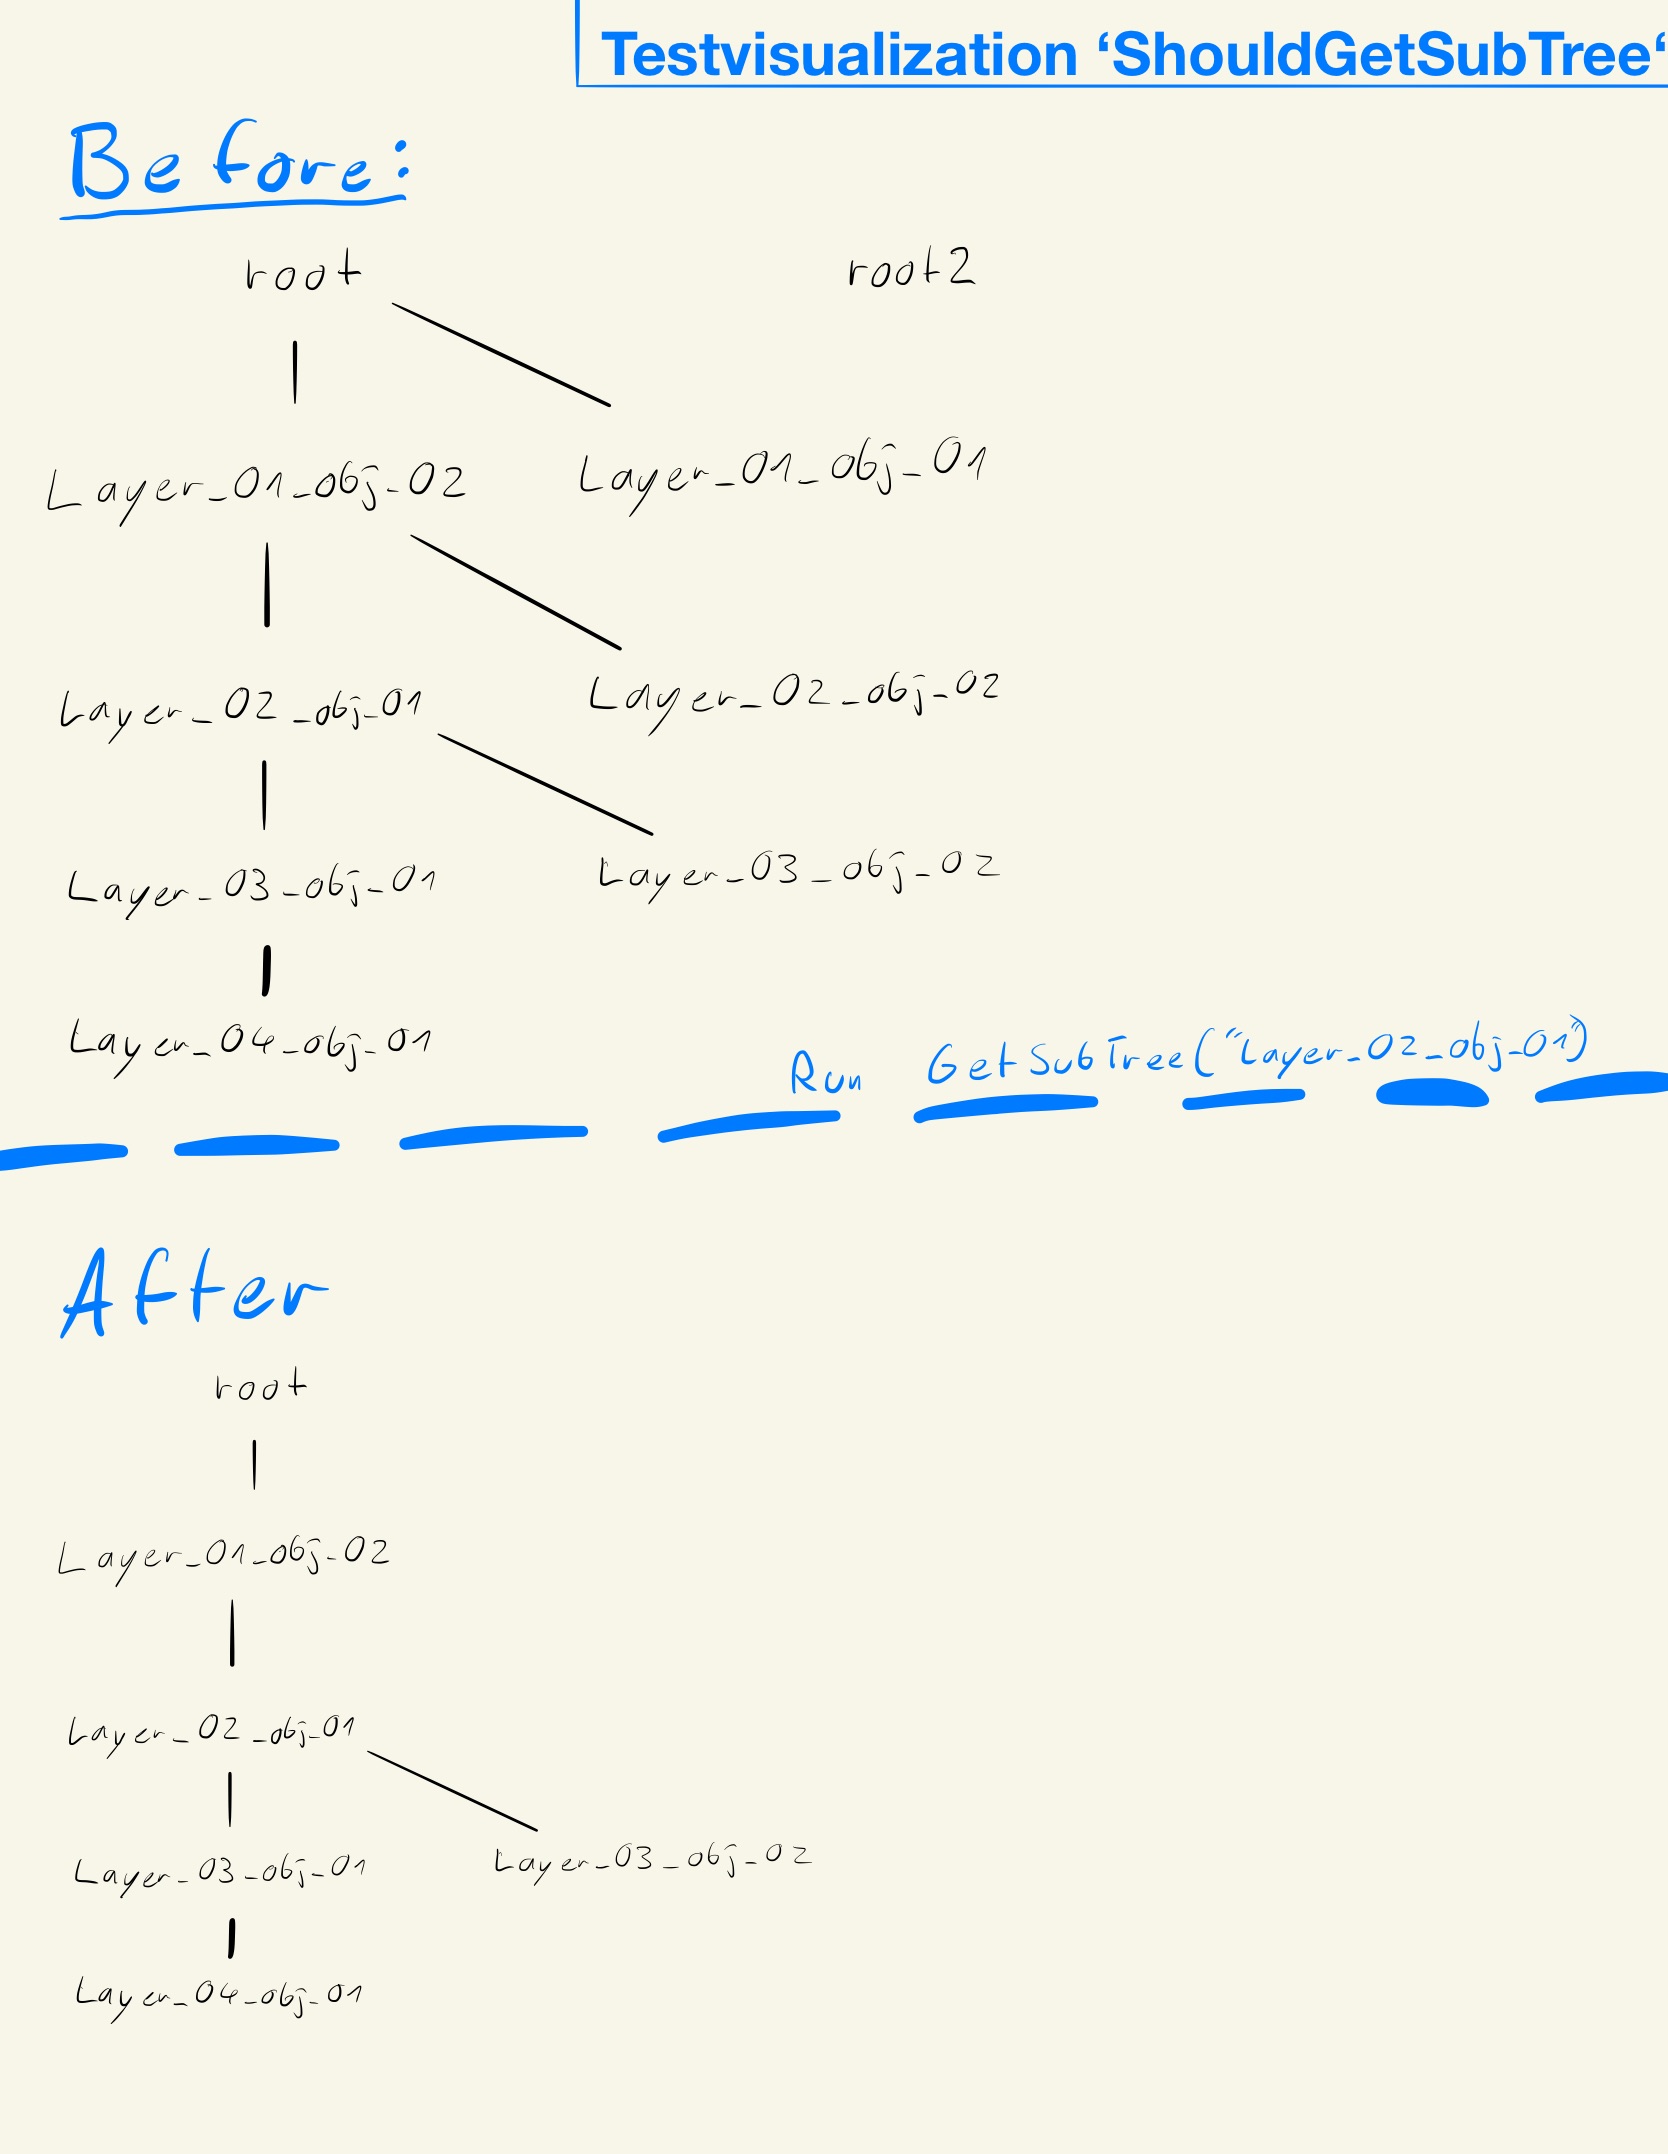 Testvisualization ‘ShouldGetSubTree‘
Before:
root root2
Layer_01_obj_02 Layer_01_obj_01
Layer_02_obj_01 Layer_02_obj_02
Layer_03_obj_01 Layer_03_obj_02
Layer_04_obj_01
Run GetSubTree("Layer_02_obj_01")
After
root
Layer_01_obj_02
Layer_02_obj_01
Layer_03_obj_01 Layer_03_obj_02
Layer_04_obj_01